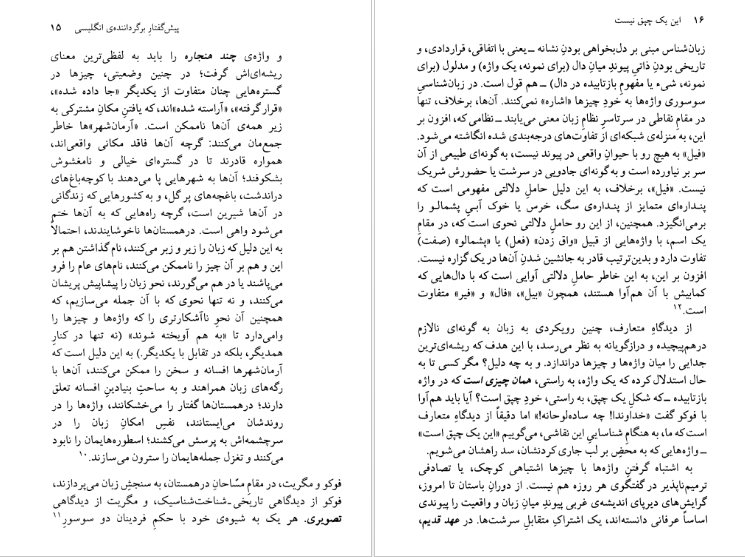 پیش‌گفتار برگرداننده‌ی انگلیسی ۱۵
و واژه‌ی چند هنجاره را باید به لفظی‌ترین معنای
ریشه‌ای‌اش گرفت؛ در چنین وضعیتی، چیزها در
گستره‌هایی چنان متفاوت از یکدیگر «جا داده شده»،
«قرار گرفته»، «آراسته شده»‌اند، که یافتنِ مکانِ مشترکی به
زیر همه‌ی آن‌ها ناممکن است. «آرمان‌شهر»ها خاطر
جمع‌مان می‌کنند: گرچه آن‌ها فاقد مکانی واقعی‌اند،
همواره قادرند تا در گستره‌ای خیالی و نامغشوش
بشکوفند؛ آن‌ها به شهرهایی پا می‌دهند با کوچه‌باغ‌های
دراندشت، باغچه‌های پر گل، و به کشورهایی که زندگانی
در آن‌ها شیرین است، گرچه راه‌هایی که به آن‌ها ختم
می‌شود واهی است. درهمستان‌ها ناخوشایندند، احتمالاً
به این دلیل که زبان را زیر و زبر می‌کنند، نام گذاشتن هم بر
این و هم بر آن چیز را ناممکن می‌کنند، نام‌های عام را فرو
می‌پاشند یا در هم می‌گورند، نحو زبان را پیشاپیش پریشان
می‌کنند، و نه تنها نحوی که با آن جمله می‌سازیم، که
همچنین آن نحوِ ناآشکارتری را که واژه‌ها و چیزها را
وامی‌دارد تا «به هم آویخته شوند» (نه تنها در کنارِ
همدیگر، بلکه در تقابل با یکدیگر.) به این دلیل است که
آرمان‌شهرها افسانه و سخن را ممکن می‌کنند، آن‌ها با
رگه‌های زبان همراهند و به ساحتِ بنیادینِ افسانه تعلق
دارند؛ درهمستان‌ها گفتار را می‌خشکانند، واژه‌ها را در
روندشان می‌ایستانند، نفسِ امکانِ زبان را در
سرچشمه‌اش به پرسش می‌کشند؛ اسطوره‌هایمان را نابود
می‌کنند و تغزل جمله‌هایمان را سترون می‌سازند.۱۰
فوکو و مگریت، در مقامِ مسّاحانِ درهمستان، به سنجشِ زبان می‌پردازند،
فوکو از دیدگاهی تاریخی‌ـ‌شناخت‌شناسیک، و مگریت از دیدگاهی
تصویری. هر یک به شیوه‌ی خود با حکمِ فردینان دو سوسورِ۱۱
۱۶ این یک چپق نیست
زبان‌شناس مبنی بر دل‌بخواهی بودنِ نشانه ــ یعنی با اتفاقی، قراردادی، و
تاریخی بودنِ ذاتیِ پیوندِ میانِ دال (برای نمونه، یک واژه) و مدلول (برای
نمونه، شیء یا مفهومِ بازتابیده در دال) ــ هم قول است. در زبان‌شناسیِ
سوسوری واژه‌ها به خودِ چیزها «اشاره» نمی‌کنند. آن‌ها، برخلاف، تنها
در مقامِ نقاطی در سرتاسرِ نظامِ زبان معنی می‌یابند ــ نظامی که، افزون بر
این، به منزله‌ی شبکه‌ای از تفاوت‌های درجه‌بندی شده انگاشته می‌شود.
«فیل» به هیچ رو با حیوانِ واقعی در پیوند نیست، به گونه‌ای طبیعی از آن
سر بر نیاورده است و به گونه‌ای جادویی در سرشت یا حضورش شریک
نیست. «فیل»، برخلاف، به این دلیل حاملِ دلالتی مفهومی است که
پنداره‌ای متمایز از پنداره‌ی سگ، خرس یا خوک آبیِ پشمالو را
برمی‌انگیزد. همچنین، از این رو حاملِ دلالتی نحوی است که، در مقامِ
یک اسم، با واژه‌هایی از قبیل «واق زدن» (فعل) یا «پشمالو» (صفت)
تفاوت دارد و بدین‌ترتیب قادر به جانشین شدنِ آن‌ها در یک گزاره نیست.
افزون بر این، به این خاطر حاملِ دلالتی آوایی است که با دال‌هایی که
کمابیش با آن هم‌آوا هستند، همچون «بیل»، «فال» و «فیر» متفاوت
است.۱۲
از دیدگاهِ متعارف، چنین رویکردی به زبان به گونه‌ای نالازم
درهم‌پیچیده و درازگویانه به نظر می‌رسد، با این هدف که ریشه‌ای‌ترین
جدایی را میان واژه‌ها و چیزها دراندازد. و به چه دلیل؟ مگر کسی تا به
حال استدلال کرده که یک واژه، به راستی، همان چیزی است که در واژه
بازتابیده ــ که شکلِ یک چپق، به راستی، خودِ چپق است؟ آیا باید هم‌آوا
با فوکو گفت «خداوندا! چه ساده‌لوحانه!» اما دقیقاً از دیدگاهِ متعارف
است که ما، به هنگامِ شناساییِ این نقاشی، می‌گوییم «این یک چپق است»
ــ واژه‌هایی که به محضِ بر لب جاری کردنشان، سد راهشان می‌شویم.
به اشتباه گرفتنِ واژه‌ها با چیزها اشتباهی کوچک، یا تصادفی
ترمیم‌ناپذیر در گفتگوی هر روزه هم نیست. از دورانِ باستان تا امروز،
گرایش‌های دیرپای اندیشه‌ی غربی پیوندِ میانِ زبان و واقعیت را پیوندی
اساساً عرفانی دانسته‌اند، یک اشتراکِ متقابلِ سرشت‌ها. در عهد قدیم،